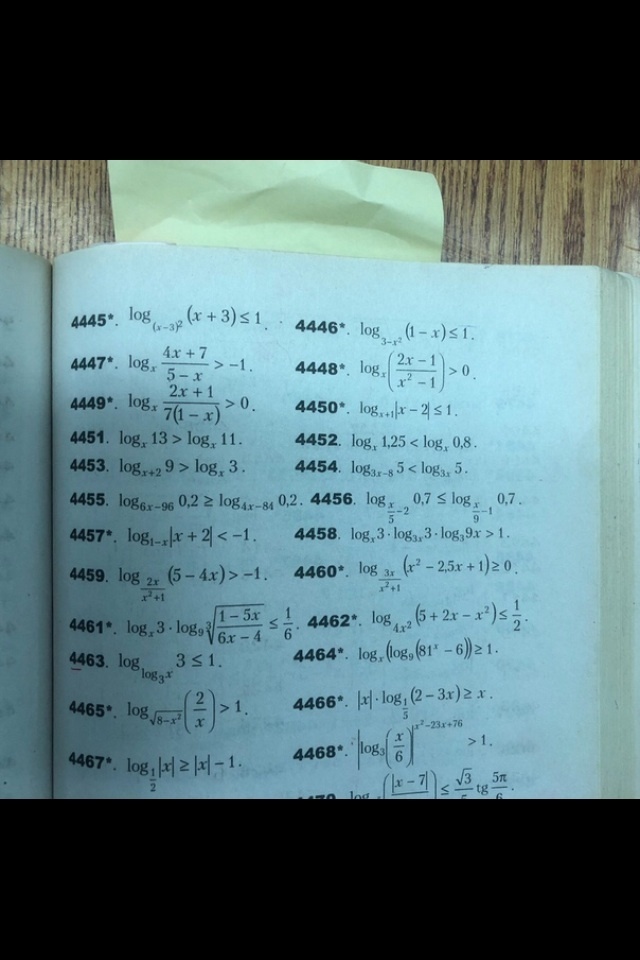 4445*. log_{(x−3)²} (x + 3) ≤ 1. 4446*. log_{3−x²} (1 − x) ≤ 1.
4447*. log_x \frac{4x + 7}{5 − x} > −1. 4448*. log_x (\frac{2x − 1}{x² − 1}) > 0.
4449*. log_x \frac{2x + 1}{7(1 − x)} > 0. 4450*. log_{x+1}|x − 2| ≤ 1.
4451. log_x 13 > log_x 11. 4452. log_x 1,25 < log_x 0,8.
4453. log_{x+2} 9 > log_x 3. 4454. log_{3x−8} 5 < log_{3x} 5.
4455. log_{6x−96} 0,2 ≥ log_{4x−84} 0,2. 4456. log_{\frac{x}{5}−2} 0,7 ≤ log_{\frac{x}{9}−1} 0,7.
4457*. log_{1−x}|x + 2| < −1. 4458. log_x 3 · log_{3x} 3 · log_3 9x > 1.
4459. log_{\frac{2x}{x²+1}} (5 − 4x) > −1. 4460*. log_{\frac{3x}{x²+1}} (x² − 2,5x + 1) ≥ 0.
4461*. log_x 3 · log_9 \sqrt[3]{\frac{1 − 5x}{6x − 4}} ≤ \frac{1}{6}. 4462*. log_{4x²} (5 + 2x − x²) ≤ \frac{1}{2}.
4463. log_{log_3 x} 3 ≤ 1. 4464*. log_x (log_9 (81^x − 6)) ≥ 1.
4465*. log_{\sqrt{8−x²}} (\frac{2}{x}) > 1. 4466*. |x| · log_{\frac{1}{5}} (2 − 3x) ≥ x.
4467*. log_{\frac{1}{2}} |x| ≥ |x| − 1. 4468*. |log_3 (\frac{x}{6})|^{x²−23x+76} > 1.
log (|x − 7| ≤ √3 tg 5π